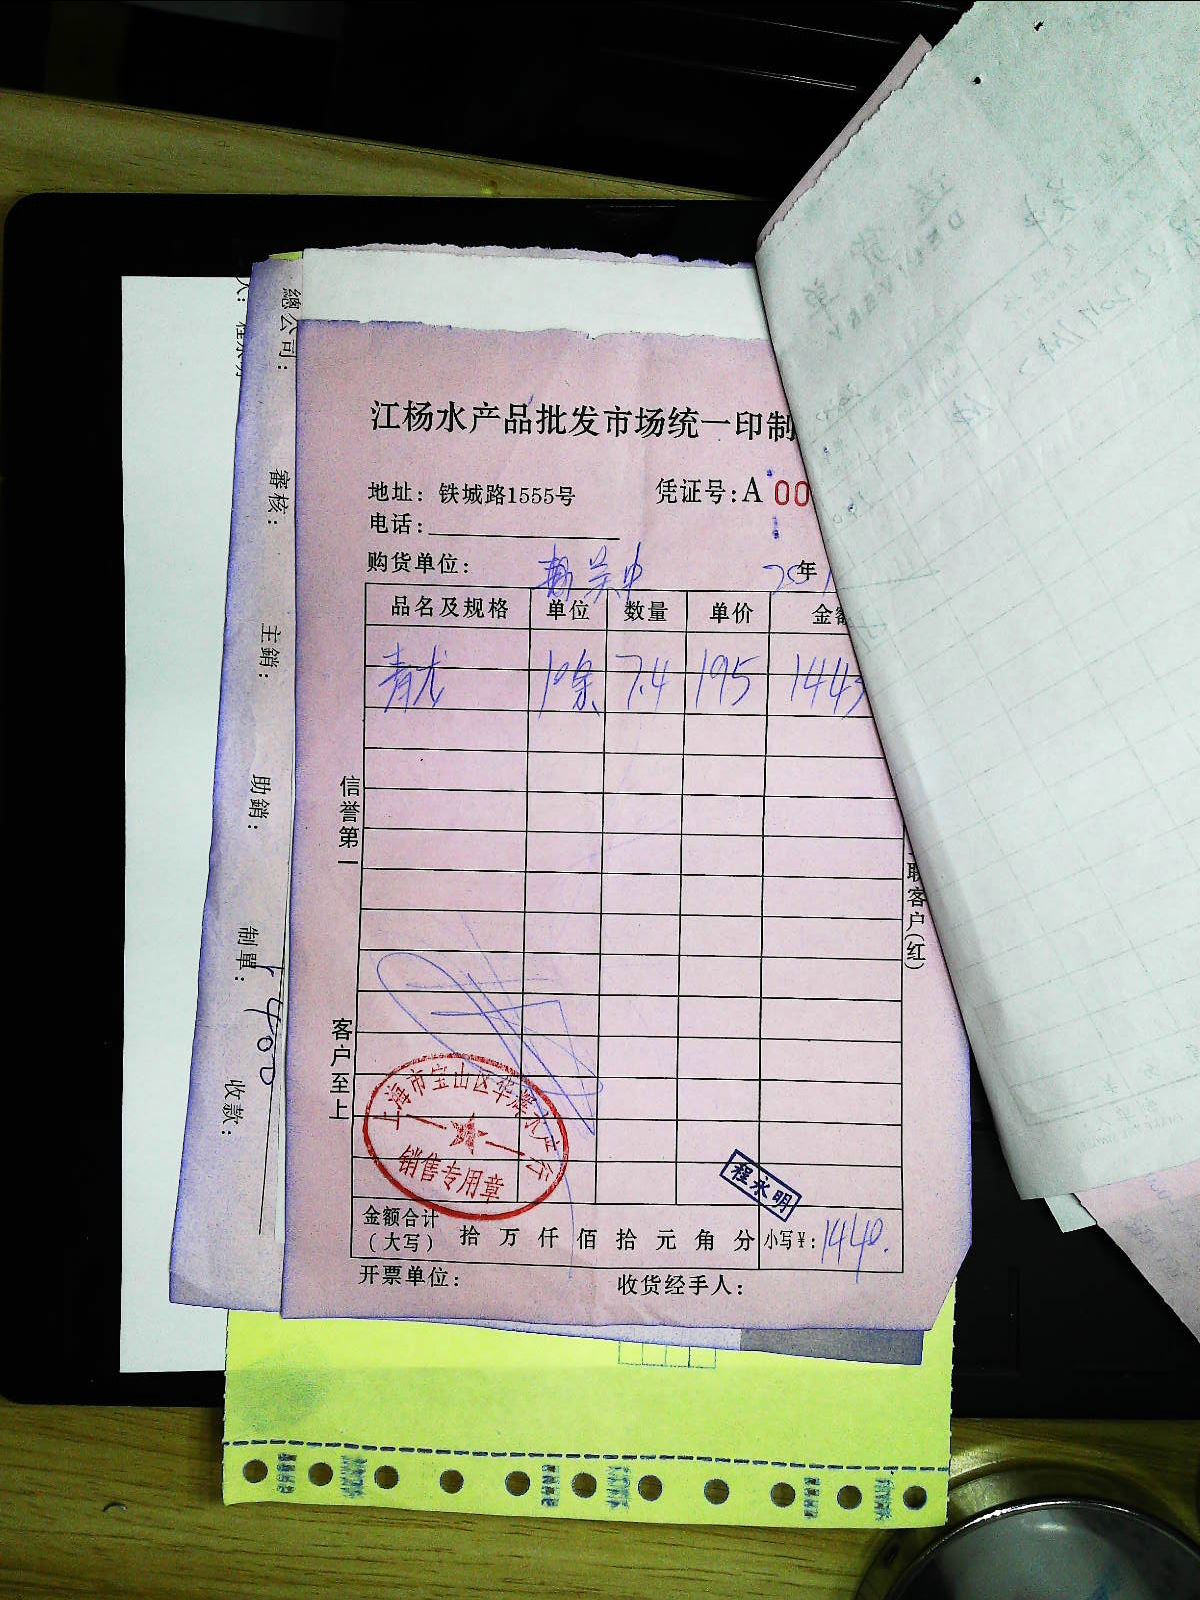 江杨水产品批发市场统一印制
地址：铁城路1555号
凭证号：A 00
电话：
购货单位：
年
品名及规格 单位 数量 单价 金额
青龙 10条 7.4 195 1443
信誉第一
客户至上
联客户(红)
上海市宝山区华辉水产行
销售专用章
程永明
金额合计
(大写) 拾 万 仟 佰 拾 元 角 分 小写¥: 1440.
开票单位：
收货经手人：
總公司：
審核：
主銷：
助銷：
制單：
收款：
400